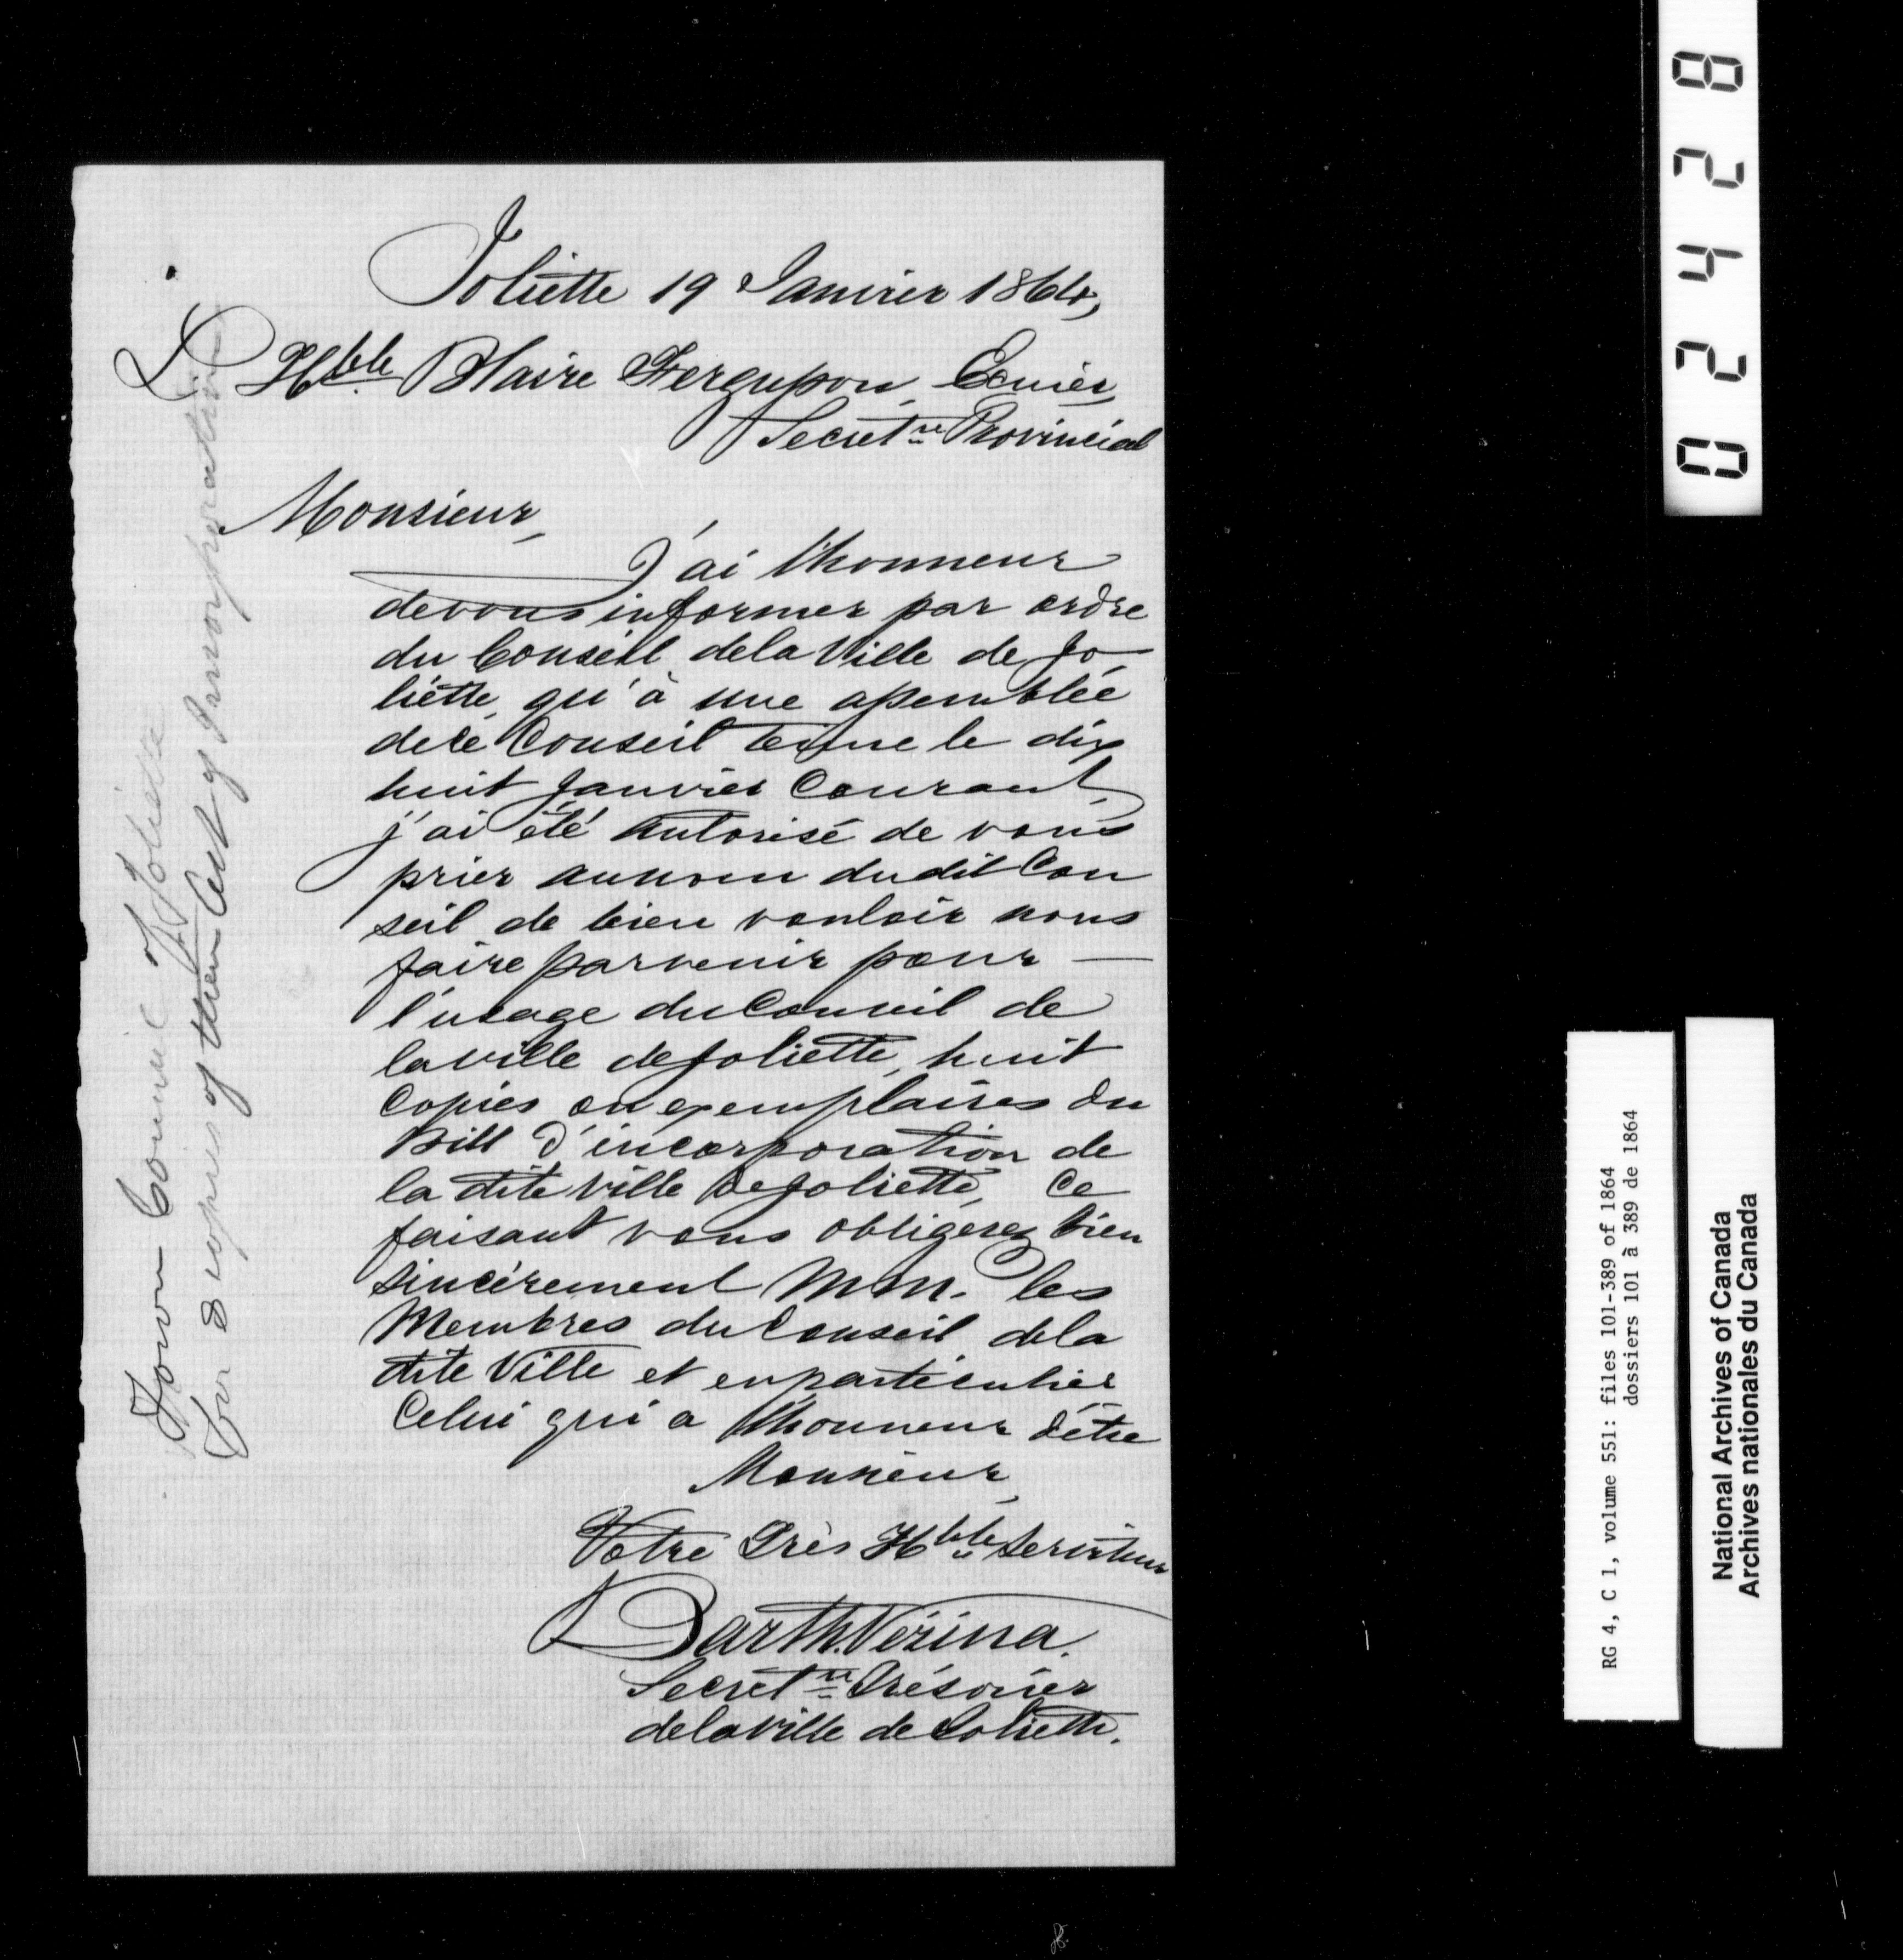 Joliette 19 Janvier 1864,
L'Hble Blaire Fergusson, Ecuier,
Secretre Provincial
Monsieur,
J'ai l'honneur
de vous informer par ordre
du Conseil de la Ville de Jo-
liette, qu'à une assemblée
de ce Conseil tenue le dix
huit Janvier Courant,
j'ai été autorisé de vous
prier au nom du dit Con
seil de bien vouloir nous
faire parvenir pour —
l'usage du Conseil de
la ville de Joliette, huit
Copies ou exemplaires du
Bill d'incorporation de
la dite ville de Joliette, Ce
faisant vous obligerez bien
sincèrement MM. les
Membres du Conseil de la
dite Ville et en particulier
Celui qui a l'honneur d'être
Monsieur,
Votre Très Hble Serviteur
Barth. Vézina.
Secretre Trésorier
de la ville de Joliette.
Town Council of Joliette
for 8 copies of their Act of Incorporation
02428
RG 4, C 1, volume 551: files 101-389 of 1864
dossiers 101 à 389 de 1864
National Archives of Canada
Archives nationales du Canada